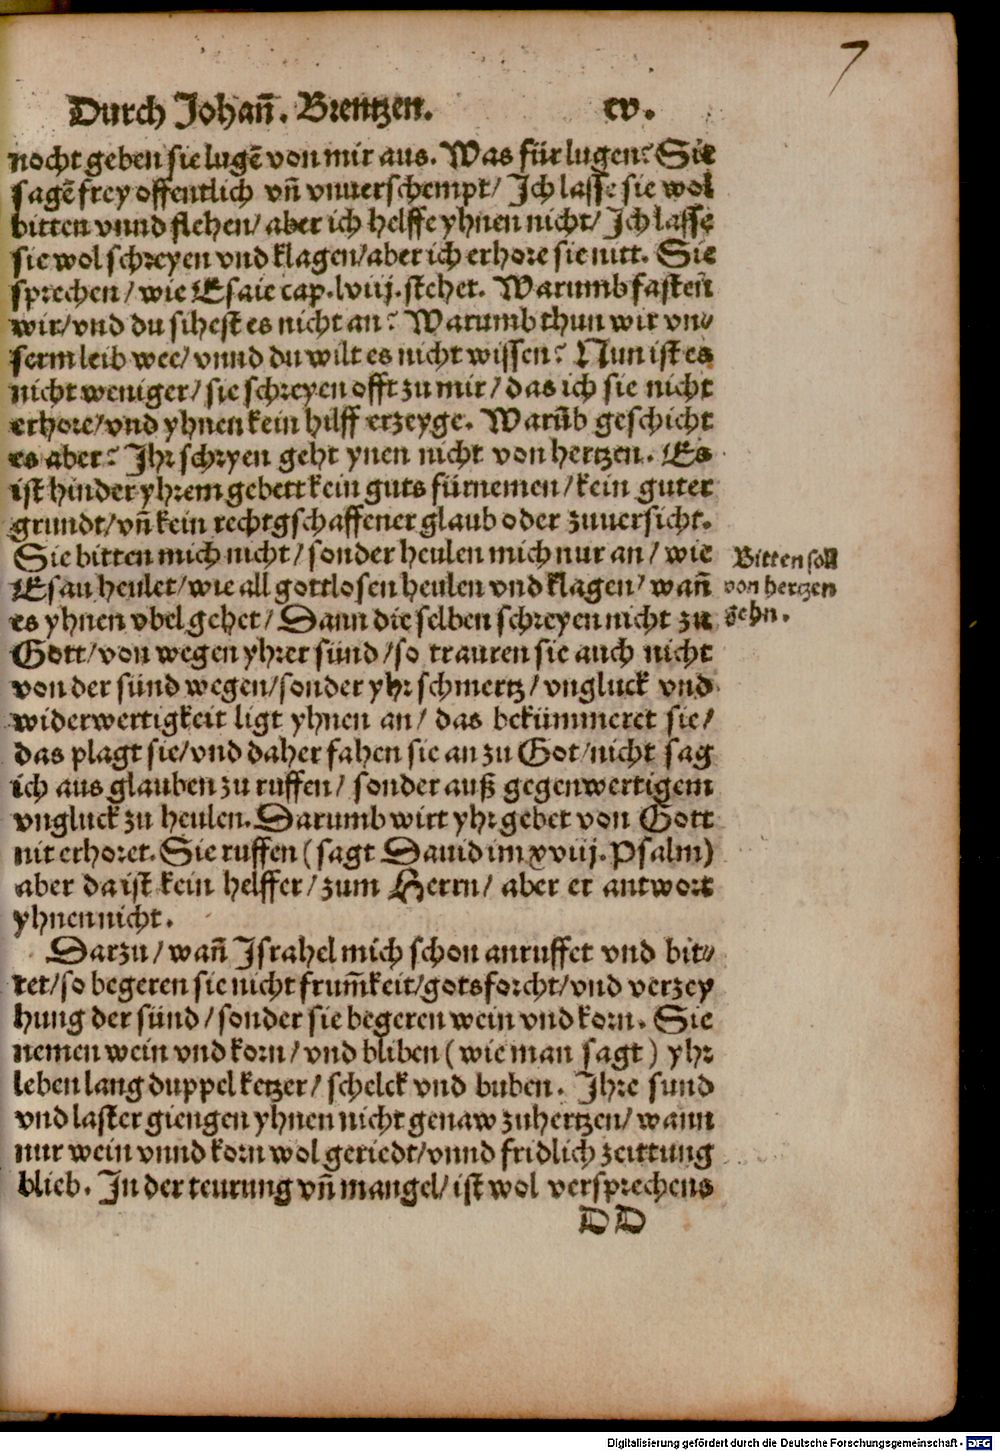 7
Durch Johañ. Brentzen. cv.
nocht geben sie lugē von mir aus. Was für lugen? Sie
sagē frey offentlich vñ vnuerschempt/ Ich lasse sie wol
bitten vnnd flehen/ aber ich helffe yhnen nicht/ Ich lasse
sie wol schreyen vnd klagen/ aber ich erhore sie nitt. Sie
sprechen/ wie Esaie cap. lviij. stehet. Warumb fasten
wir/ vnd du sihest es nicht an? Warumb thun wir vn⸗
serm leib wee/ vnnd du wilt es nicht wissen? Nun ist es
nicht weniger/ sie schreyen offt zu mir/ das ich sie nicht
erhore/ vnd yhnen kein hilff erzeyge. Warūb geschicht
es aber? Ihr schryen geht ynen nicht von hertzen. Es
ist hinder yhrem gebett kein guts fürnemen/ kein guter
grundt/ vñ kein rechtgschaffener glaub oder zuuersicht.
Sie bitten mich nicht/ sonder heulen mich nur an/ wie
Esau heulet/ wie all gottlosen heulen vnd klagen/ wañ
es yhnen vbel gehet/ Dann die selben schreyen nicht zu
Gott/ von wegen yhrer sünd/ so trauren sie auch nicht
von der sünd wegen/ sonder yhr schmertz/ vngluck vnd
widerwertigkeit ligt yhnen an/ das bekümmeret sie/
das plagt sie/ vnd daher fahen sie an zu Got/ nicht sag
ich aus glauben zu ruffen/ sonder auß gegenwertigem
vngluck zu heulen. Darumb wirt yhr gebet von Gott
nit erhoret. Sie ruffen (sagt Dauid im xviij. Psalm)
aber da ist kein helffer/ zum Herrn/ aber er antwort
yhnen nicht.
Darzu/ wañ Israhel mich schon anruffet vnd bit⸗
tet/ so begeren sie nicht frum̃keit/ gotsforcht/ vnd verzey
hung der sünd/ sonder sie begeren wein vnd korn. Sie
nemen wein vnd korn/ vnd bliben (wie man sagt) yhr
leben lang duppel ketzer/ schelck vnd buben. Ihre sund
vnd laster giengen yhnen nicht genaw zuhertzen/ wann
nur wein vnnd korn wol geriedt/ vnnd fridlich zeittung
blieb. In der teurung vñ mangel/ ist wol versprechens
DD
Bitten soll
von hertzen
gehn.
Digitalisierung gefördert durch die Deutsche Forschungsgemeinschaft - DFG